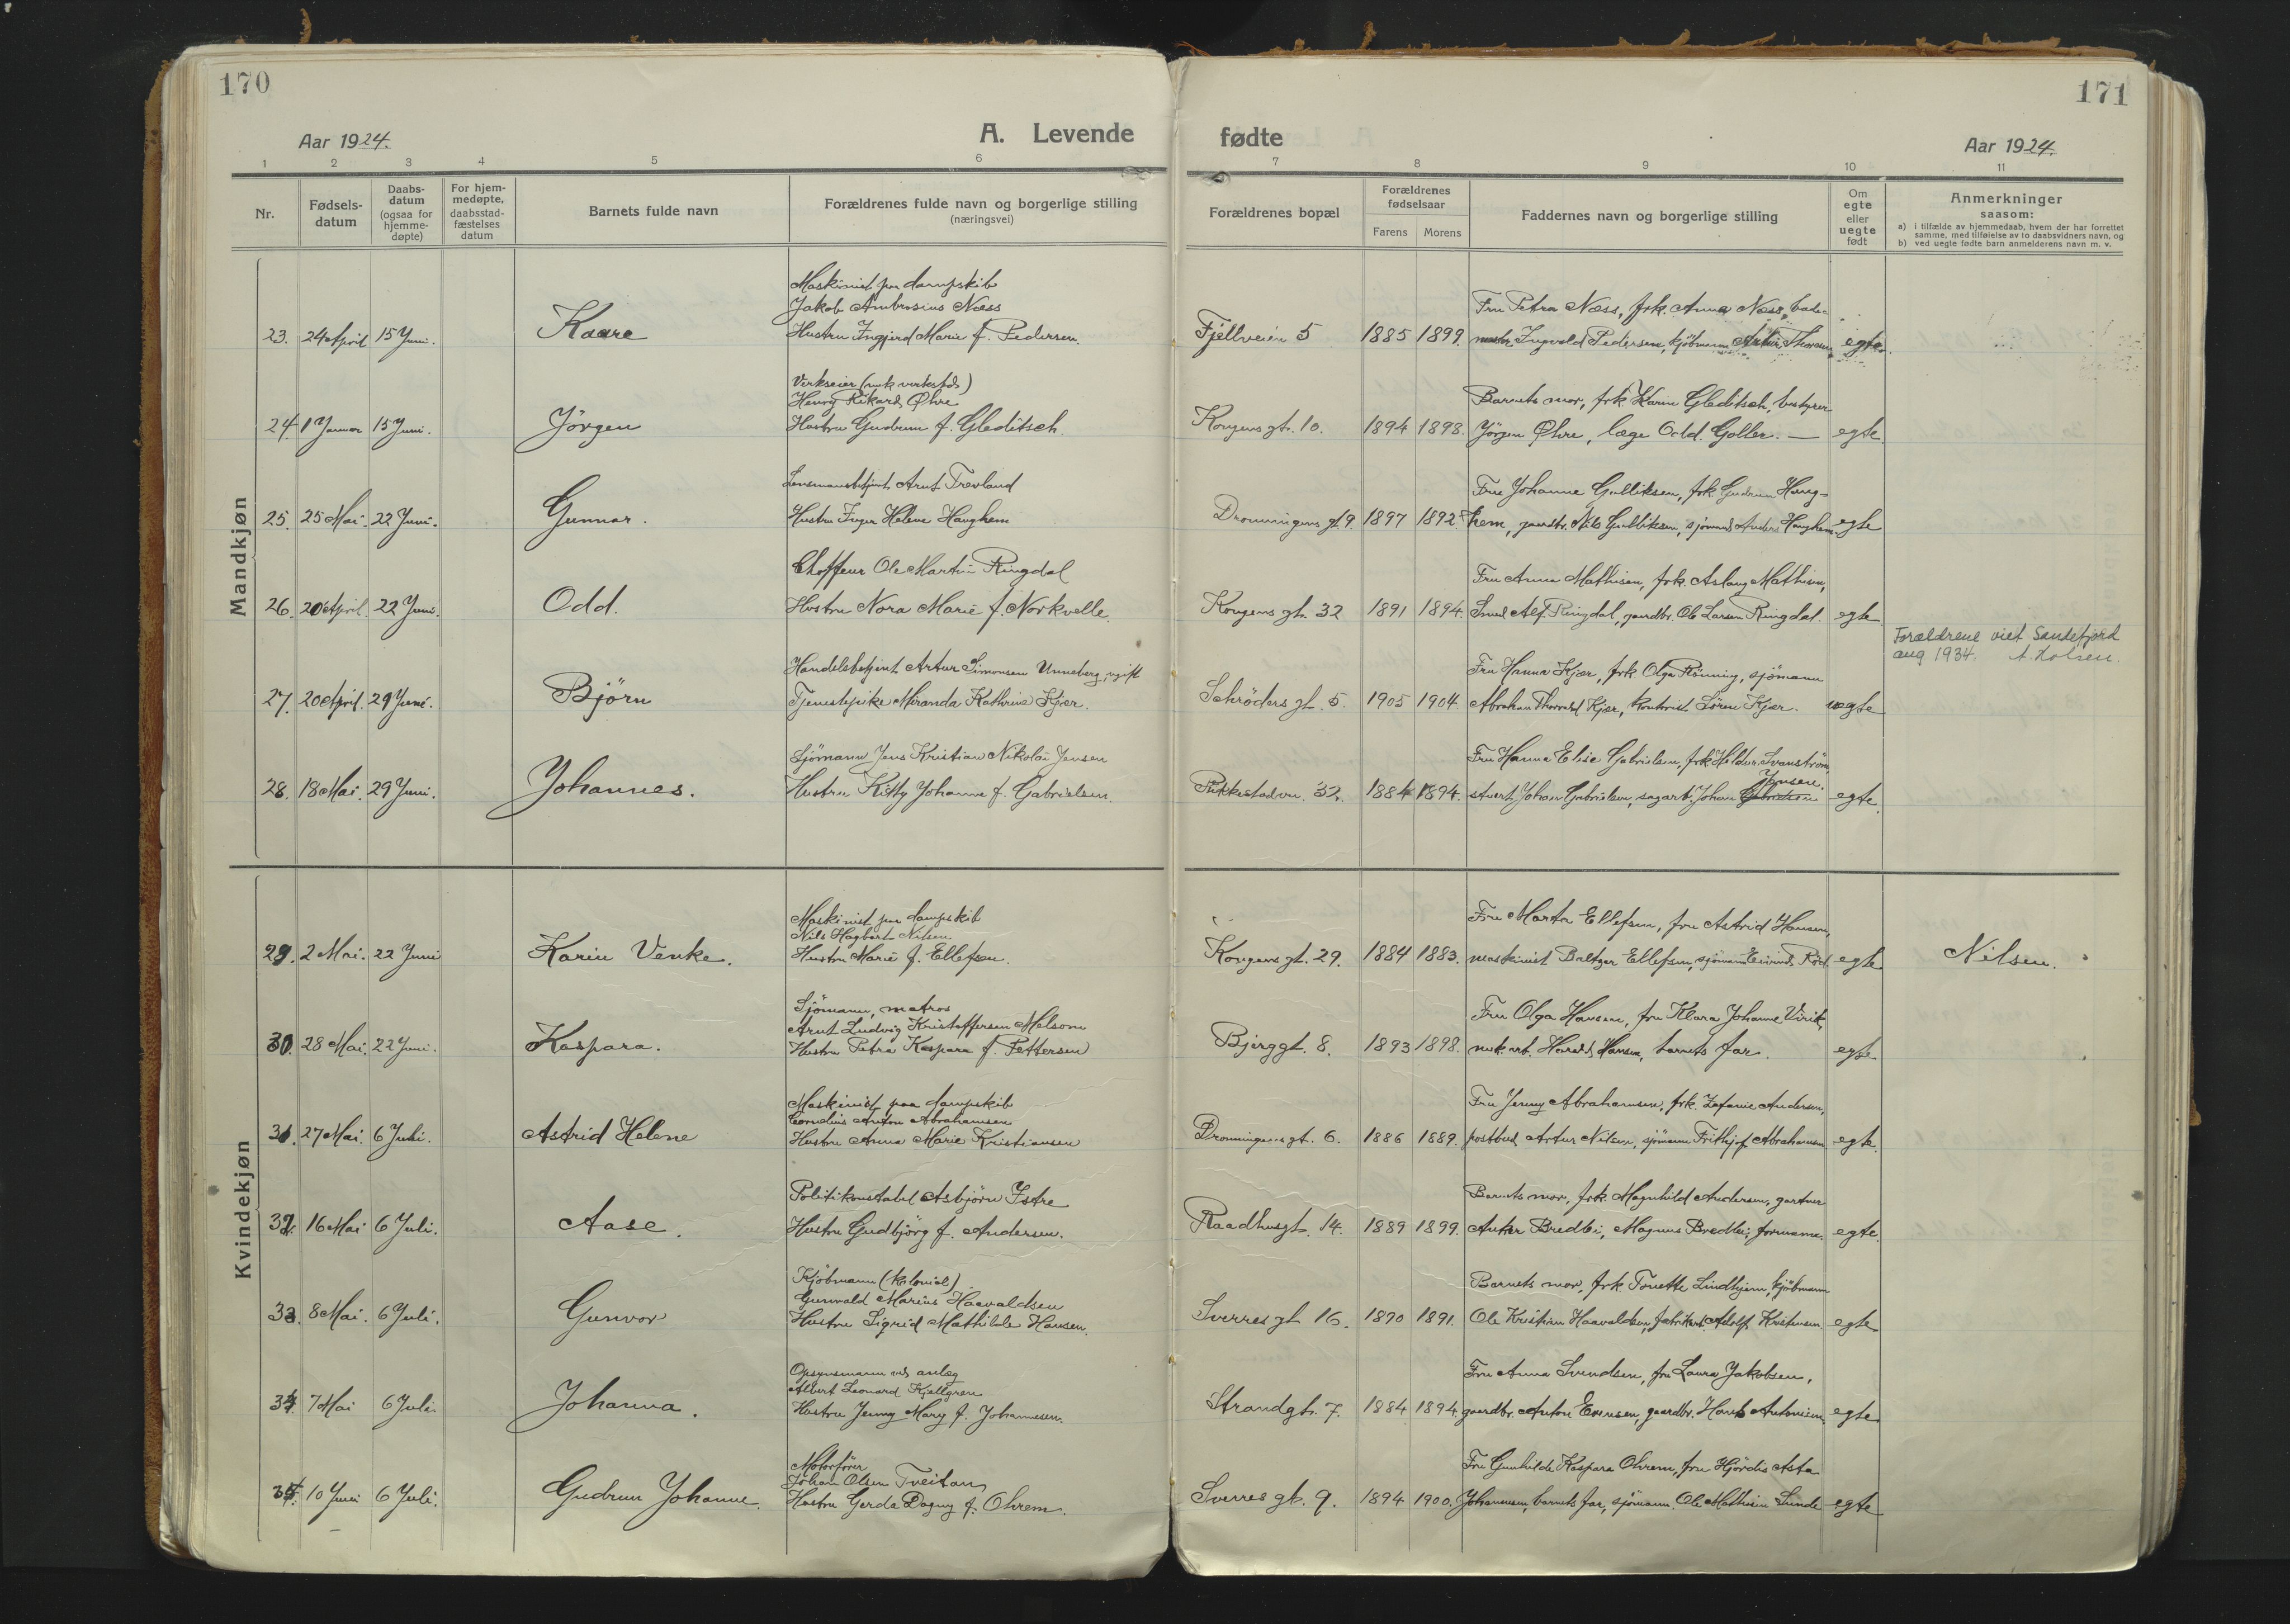 170
Aar 1924.
A. Levende
1 2 3 4 5 6
Nr.
Fødsels-
datum
Daabs-
datum
(ogsaa for
hjemme-
døpte)
For hjem-
medøpte,
daabsstad-
fæstelses
datum
Barnets fulde navn
Forældrenes fulde navn og borgerlige stilling
(næringsvei)
171
fødte
Aar 1924.
7 8 9 10 11
Forældrenes bopæl
Forældrenes
fødselsaar
Farens Morens
Faddernes navn og borgerlige stilling
Om
egte
eller
uegte
født
Anmerkninger
saasom:
a) i tilfælde av hjemmedaab, hvem der har forrettet
samme, med tilføielse av to daabsvidners navn, og
b) ved uegte fødte barn anmelderens navn m. v.
Mandkjøn
Maskinist paa dampskib
Jakob Ambrosius Næss
23. 24 April 15 Juni. Kaare Hustru Ingjerd Marie f. Pedersen.
Fru Petra Næss, frk. Anna Næss, bade-
Fjellveien 5 1885 1899. mester Ingvald Pedersen, kjöbmann Artur Thoresen, egte.
Verkseier (mek. verksted)
Henry Rikard Øhre
24. 1 Januar 15 Juni. Jörgen Hustru Gudrun f. Gleditsch.
Barnets mor, frk. Karin Gleditsch, bestyrer
Kongens gt. 10. 1894 1898. Jörgen Øhre, læge Odd. Goller. — egte.
Lensmansbetjent Arnt Trevland
25. 25 Mai. 22 Juni. Gunnar. Hustru Inger Helene Haughem
Fru Johanne Gulliksen, frk. Gudrun Haug-
Dronningens gt. 9. 1897 1892. hem, gaardbr. Nils Gulliksen, sjömand Anders Haughem. egte
Choffeur Ole Martin Ringdal
26. 20 April. 22 Juni. Odd. Hustru Nora Marie f. Norkvelle.
Fru Anna Mathisen, frk. Aslaug Mathisen,
Kongens gt. 32 1891 1894. Smed Alf Ringdal, gaardbr. Ole Larsen Ringdal. egte
Forældrene viet Sandefjord
aug 1934. A. Holsen.
Handelsbetjent Artur Simonsen Unneberg, ugift
27. 20 April. 29 Juni. Björn Tjenestepike Miranda Kathrine Kjær.
Fru Hanna Kjær, frk. Olga Rönning, sjömann
Schröders gt. 5. 1905 1904. Abraham Thorvald Kjær, kontorist Sören Kjær. uegte
Sjömann Jens Kristian Nikolai Jensen
28. 18 Mai. 29 Juni. Johannes. Hustru Kitty Johanne f. Gabrielsen.
Fru Hanna Elise Gabrielsen, frk. Heldur. Svanström,
Jensen.
Pukkestadvn. 32. 1884 1894. stuert Johan Gabrielsen, sagarb. Johan Gabrielsen egte.
Kvindekjøn
Maskinist paa dampskib
Nils Hagbart Nilsen
29. 2 Mai. 22 Juni Karin Venke. Hustru Marie f. Ellefsen.
Fru Marta Ellefsen, fru Astrid Hansen,
Kongens gt. 29. 1884 1883. maskinist Baltzer Ellefsen, sjömann Eivind Röd. egte Nilsen.
Sjömann, matros
Arnt Ludvig Kristoffersen Melsom
30. 28 Mai. 22 Juni. Kaspara. Hustru Petra Kaspara f. Pettersen
Fru Olga Hansen, fru Klara Johanne Virik,
Bjerggt. 8. 1893 1898. mek. arb. Harald Hansen, barnets far. egte
Maskinist paa dampskib
Cornelius Anton Abrahamsen
31. 27 Mai. 6 Juli. Astrid Helene Hustru Anna Marie Kristiansen
Fru Jenny Abrahamsen, frk. Zefanie Andersen,
Dronningens gt. 6. 1886 1889. postbud Artur Nilsen, sjömann Frithjof Abrahamsen egte.
Politikonstabel Asbjörn Istre
32. 16 Mai 6 Juli. Aase. Hustru Gudbjörg f. Andersen.
Barnets mor, frk. Magnhild Andersen, gartner
Raadhusgt. 14. 1889 1899. Anker Bredlei, Magnus Bredlei, formann. egte.
Kjöbmann (kolonial)
Gunvald Marius Haavaldsen
33. 8 Mai. 6 Juli. Gunvor Hustru Sigrid Mathilde Hansen.
Barnets mor, frk. Tonette Lindhjem, kjöbmann
Sverres gt. 16. 1890 1891. Ole Kristian Haavaldsen, fabrikarb. Adolf Kristensen. egte
Opsynsmann ved anlæg
Albert Leonard Kjellgren
34. 7 Mai 6 Juli Johanna. Hustru Jenny Mary f. Johannessen.
Fru Anna Svendsen, fru Laura Jakobsen,
Strandgt. 7. 1884 1894. gaardbr. Anton Evensen, gaardbr. Hans Antonsen. egte
Motorfører
Johan Olsen Tveitan
35. 10 Juni 6 Juli. Gudrun Johanne. Hustru Gerda Dagny f. Ohrem.
Fru Gunhilde Kaspara Ohrem, fru Hjördis Asta
Sverres gt. 9. 1894 1900. Johannesen, barnets far, sjömann. Ole Mathisen Lunde egte